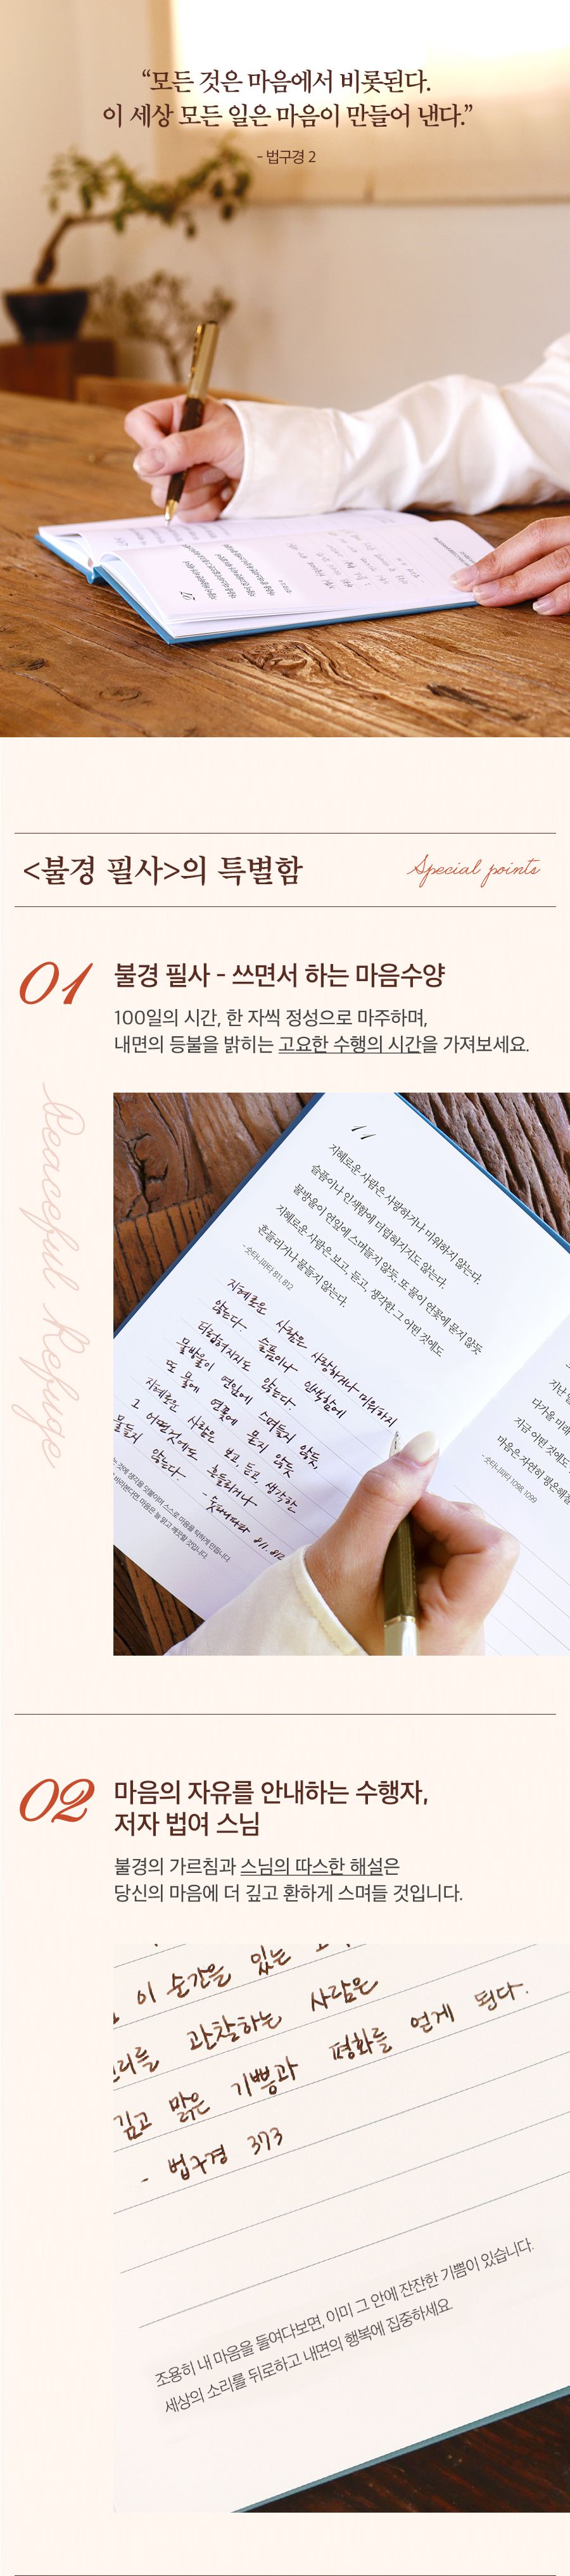 “모든 것은 마음에서 비롯된다.
이 세상 모든 일은 마음이 만들어 낸다.”
- 법구경 2
<불경 필사>의 특별함
Special points
01
불경 필사 - 쓰면서 하는 마음수양
100일의 시간, 한 자씩 정성으로 마주하며,
내면의 등불을 밝히는 고요한 수행의 시간을 가져보세요.
Peaceful Refuge
지혜로운 사람은 사랑하거나 미워하지 않는다.
슬픔이나 인색함에 더럽혀지지도 않는다.
물방울이 연잎에 스며들지 않듯, 또 물이 연꽃에 묻지 않듯
지혜로운 사람은 보고, 듣고, 생각한 그 어떤 것에도
흔들리거나 물들지 않는다.
- 숫타니파타 811, 812
지혜로운 사람은 사랑하거나 미워하지
않는다. 슬픔이나 인색함에
더럽혀지지도 않는다.
물방울이 연잎에 스며들지 않듯,
또 물에 연꽃에 묻지 않듯
지혜로운 사람은 보고, 듣고, 생각한
그 어떤것에도 흔들리거나
물들지 않는다.
- 숫타니파타 811, 812
는 것에 생각을 덧붙이며 스스로 마음을 탁하게 만듭니다.
바라본다면, 마음은 늘 맑고 깨끗할 것입니다.
지난
다가올 미래
지금 어떤 것에도
마음은 자연히 평온해질
- 숫타니파타 1098, 1099
02
마음의 자유를 안내하는 수행자,
저자 법여 스님
불경의 가르침과 스님의 따스한 해설은
당신의 마음에 더 깊고 환하게 스며들 것입니다.
이 순간을 있는
관찰하는 사람은
깊고 맑은 기쁨과 평화를 얻게 된다.
- 법구경 373
조용히 내 마음을 들여다보면, 이미 그 안에 잔잔한 기쁨이 있습니다.
세상의 소리를 뒤로하고 내면의 행복에 집중하세요.